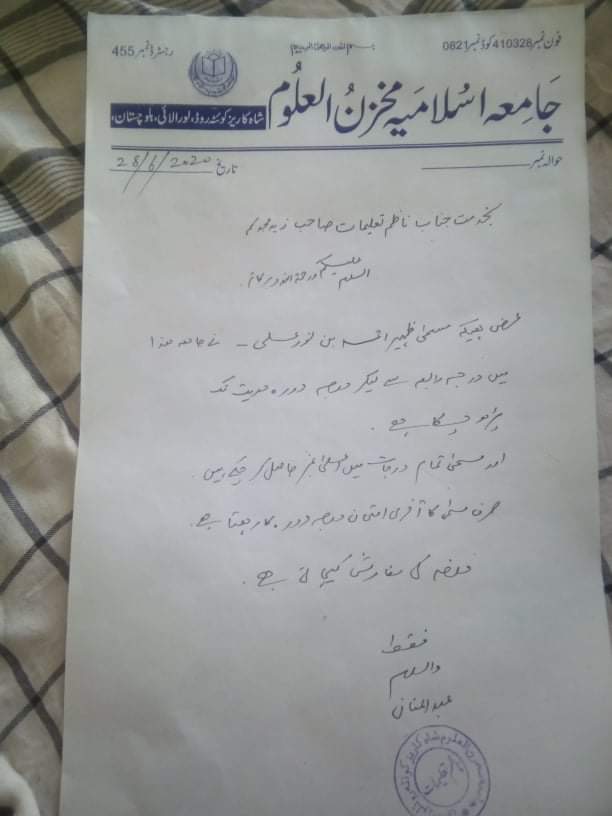 فون نمبر 410328 کوڈ نمبر 0821
بسم اللہ الرحمٰن الرحیم
رجسٹرڈ نمبر 455
جَامِعہ اسْلامیَہ مَخزنُ العلُوم
شاہ کاریز کوئٹہ روڈ، لورالائی، بلوچستان،
حوالہ نمبر
تاریخ 28/6/2020
بخدمت جناب ناظم تعلیمات صاحب زید مجدکم
السلام علیکم ورحمۃ اللہ وبرکاتہ
عرض بعینہ مسمیٰ ظہیر احمد بن نور علی ۔ نے جامعہ ھذا
میں درجہ رابعہ سے لیکر درجہ دورہ حدیث تک
پڑھ چکا ہے ۔
اور مسمیٰ تمام درجات میں اعلیٰ نمبر حاصل کر چکے ہیں ۔
صرف مسمیٰ کا آخری امتحان درجہ دورہ کا رہتا ہے ۔
کی سفارش کیجاتی ہے ۔
فقط
والسلام
عبدالمنان